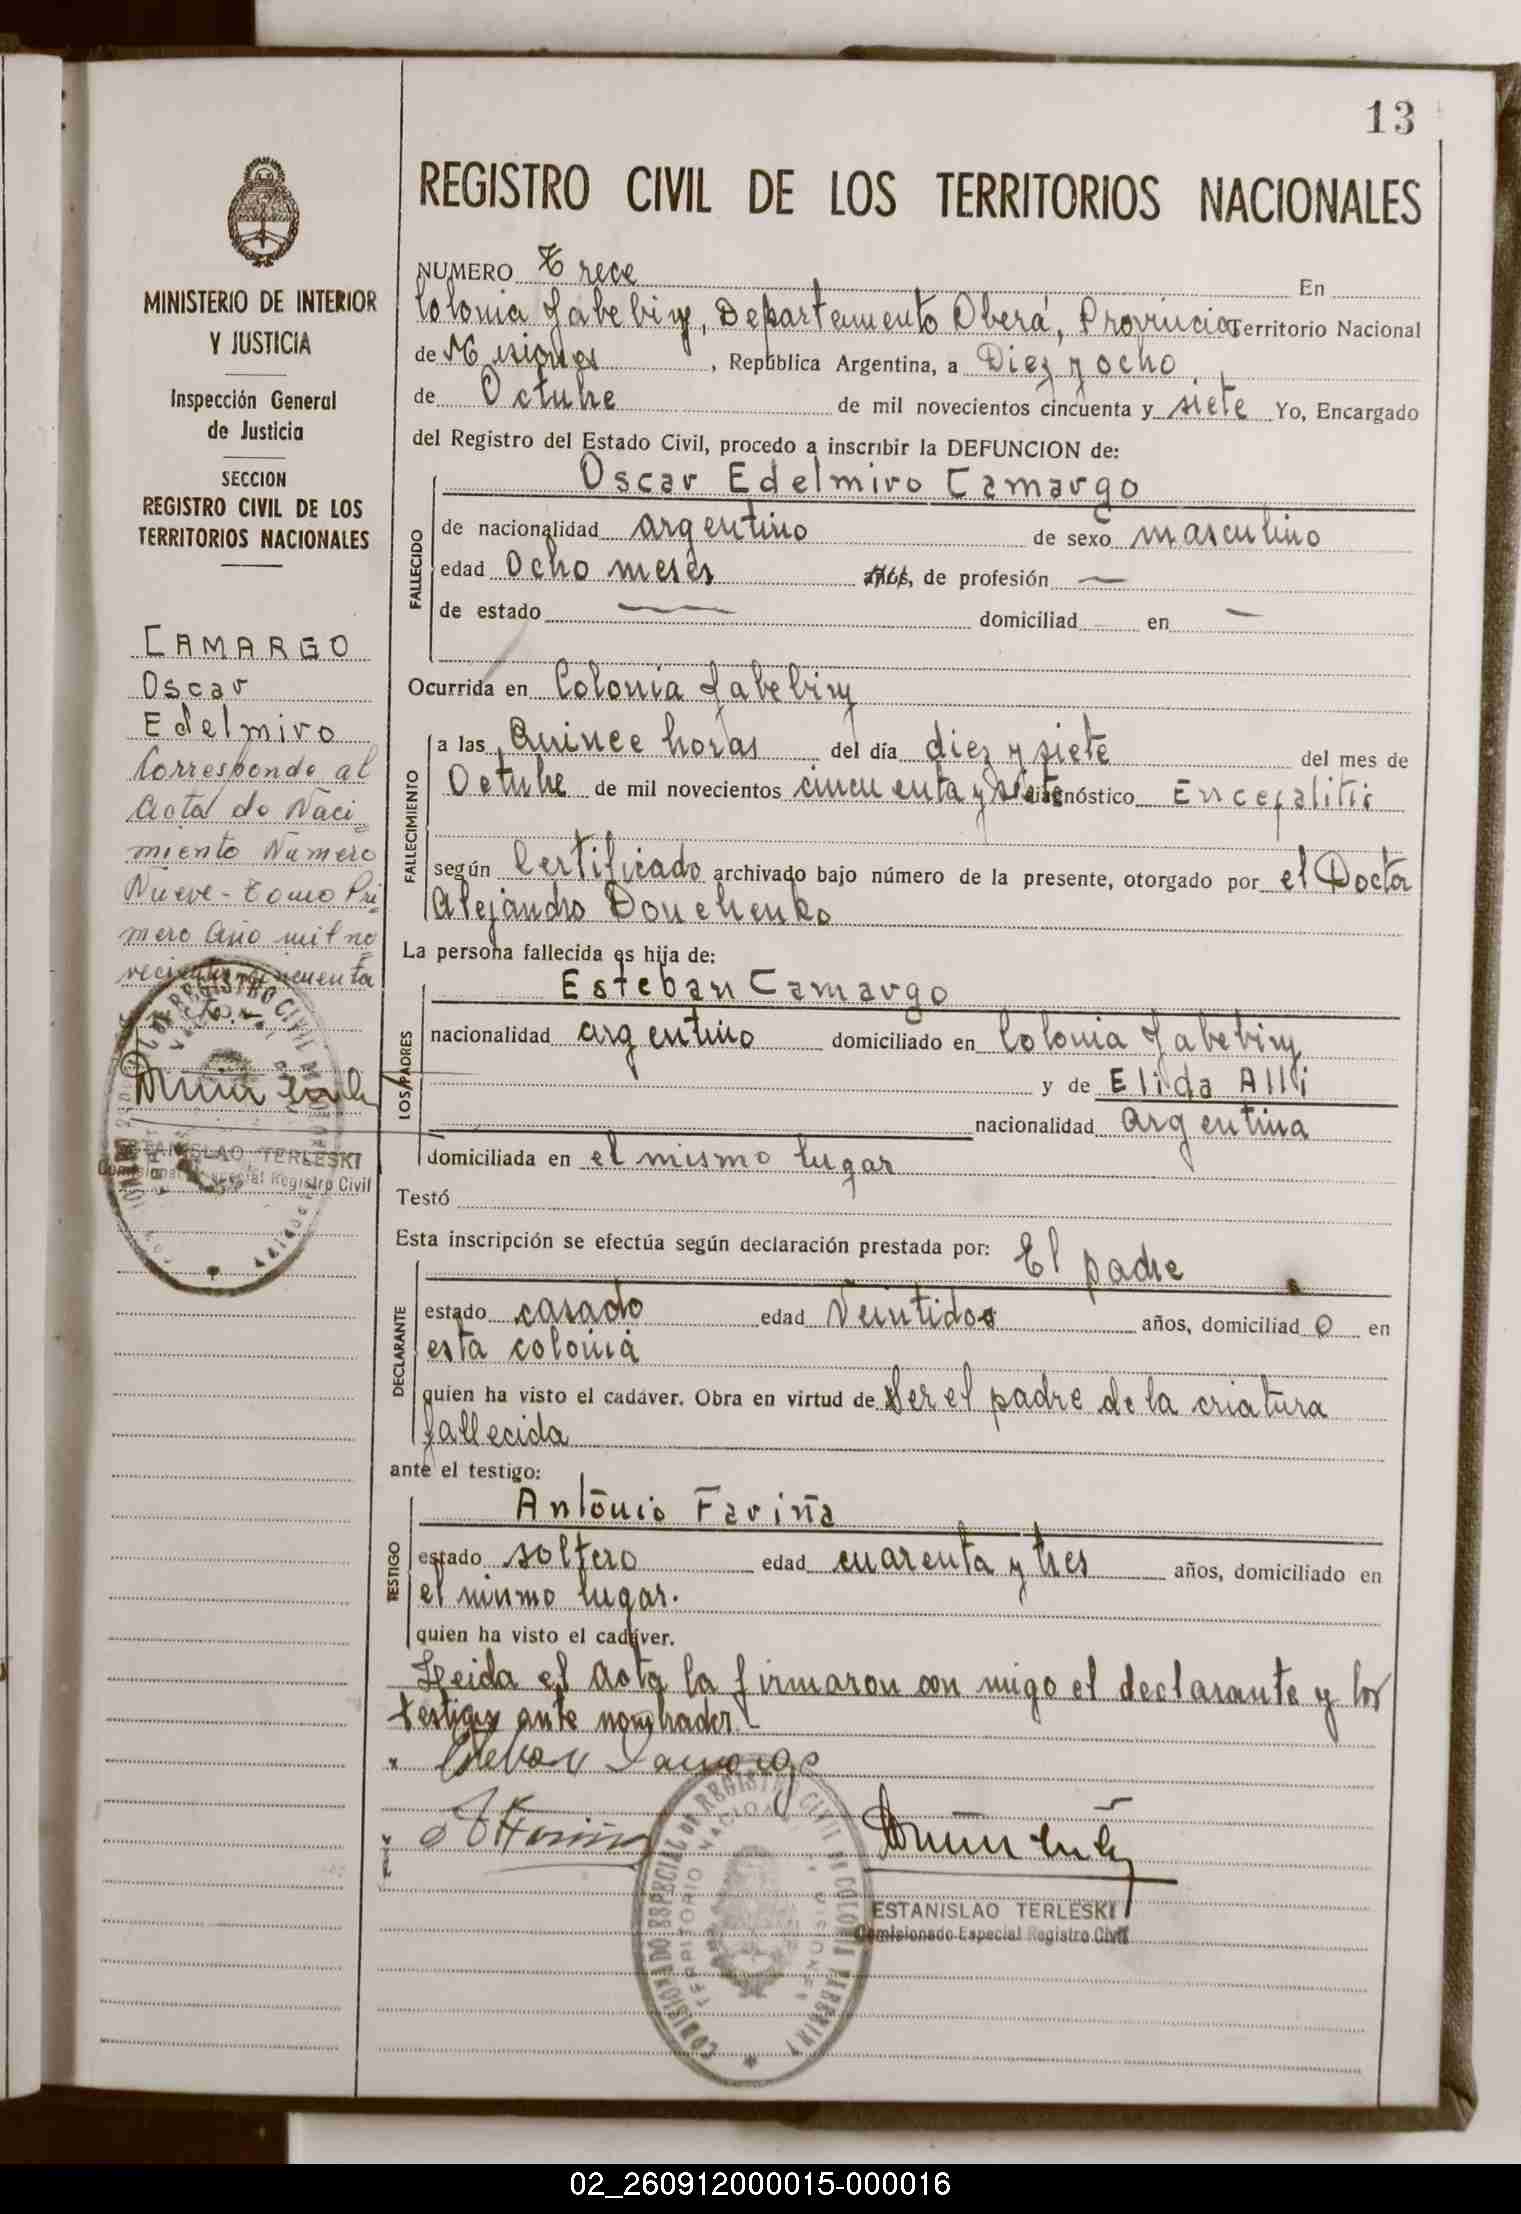 13
REGISTRO CIVIL DE LOS TERRITORIOS NACIONALES
MINISTERIO DE INTERIOR
Y JUSTICIA
Inspección General
de Justicia
SECCION
REGISTRO CIVIL DE LOS
TERRITORIOS NACIONALES
CAMARGO
Oscar
Edelmiro
Corresponde al
Acta de Naci-
miento Número
Nueve - Tomo Pri-
mero Año mil no
vecientos cincuenta
ESTANISLAO TERLESKI
Comisionado Especial Registro Civil
NUMERO Trece En
Colonia Yabebiry, Departamento Oberá, Provincia Territorio Nacional
de Misiones, República Argentina, a Diez y ocho
de Octubre de mil novecientos cincuenta y siete Yo, Encargado
del Registro del Estado Civil, procedo a inscribir la DEFUNCION de:
Oscar Edelmiro Camargo
FALLECIDO
de nacionalidad argentino de sexo masculino
edad Ocho meses años, de profesión —
de estado — domiciliad en —
Ocurrida en Colonia Yabebiry
FALLECIMIENTO
a las Quince horas del día diez y siete del mes de
Octubre de mil novecientos cincuenta y siete diagnóstico Encefalitis
según Certificado archivado bajo número de la presente, otorgado por el Doctor
Alejandro Donchenko
La persona fallecida es hija de:
LOS PADRES
Esteban Camargo
nacionalidad argentino domiciliado en Colonia Yabebiry
y de Elida Alli
nacionalidad argentina
domiciliada en el mismo lugar
Testó
Esta inscripción se efectúa según declaración prestada por: El padre
DECLARANTE
estado casado edad Veintidos años, domiciliad o en
esta colonia
quien ha visto el cadáver. Obra en virtud de Ser el padre de la criatura
fallecida
ante el testigo:
TESTIGO
Antonio Fariña
estado soltero edad cuarenta y tres años, domiciliado en
el mismo lugar.
quien ha visto el cadáver.
Leida el acta la firmaron con migo el declarante y los
testigos ante nombrados.
Esteban Camargo
A Fariña
COMISIONADO ESPECIAL DE REGISTRO CIVIL DE COLONIA YABEBIRY
TERRITORIO NACIONAL MISIONES
ESTANISLAO TERLESKI
Comisionado Especial Registro Civil
02_260912000015-000016